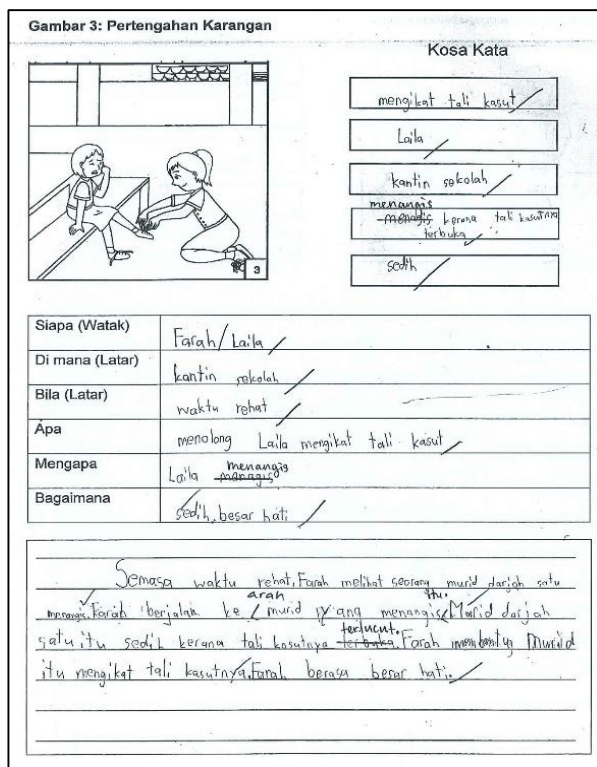 Gambar 3: Pertengahan Karangan
Kosa Kata
mengikat tali kasut
Laila
kantin sekolah
menangis
menagis kerana tali kasutnya
terbuka
sedih
3
Siapa (Watak) Farah/Laila
Di mana (Latar) kantin sekolah
Bila (Latar) waktu rehat
Apa menolong Laila mengikat tali kasut
Mengapa Laila menagis menangis
Bagaimana sedih, besar hati
Semasa waktu rehat, Farah melihat seorang murid darjah satu
arah itu.
menangis. Farah berjalan ke murid yang menangis Murid darjah
terlucut.
satu itu sedih kerana tali kasutnya terbuka. Farah membantu Murid
itu mengikat tali kasutnya. Farah berasa besar hati.